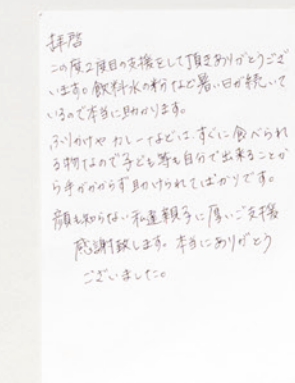 拝啓
この度2度目の支援をして頂きありがとうござ
います。飲料水の粉など暑い日が続いて
いるので本当に助かります。
ふりかけや カレーなどは、すぐに食べられ
る物なので子ども等も自分で出来ることか
ら手がかからず助けられてばかりです。
顔も知らない私達親子に厚いご支援
感謝致します。本当にありがとう
ございました。